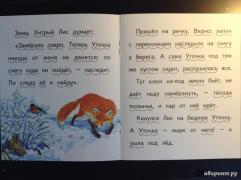 Зима. Хитрый Лис думает:
«Замёрзло озеро. Теперь Уточка
никуда от меня не денется: по
снегу куда ни пойдёт, — наследит.
По следу её и найду».
Пришёл на речку. Верно: лапки
с перепонками наследили на снегу
у берега. А сама Уточка под тем
же кустом сидит, распушилась вся.
Тут ключ из-под земли бьёт, не
даёт льду намёрзнуть, — тёплая
полынья, и пар от неё идёт.
Кинулся Лис на бедную Уточку.
А Уточка – нырк от него! — и
ушла под лёд.